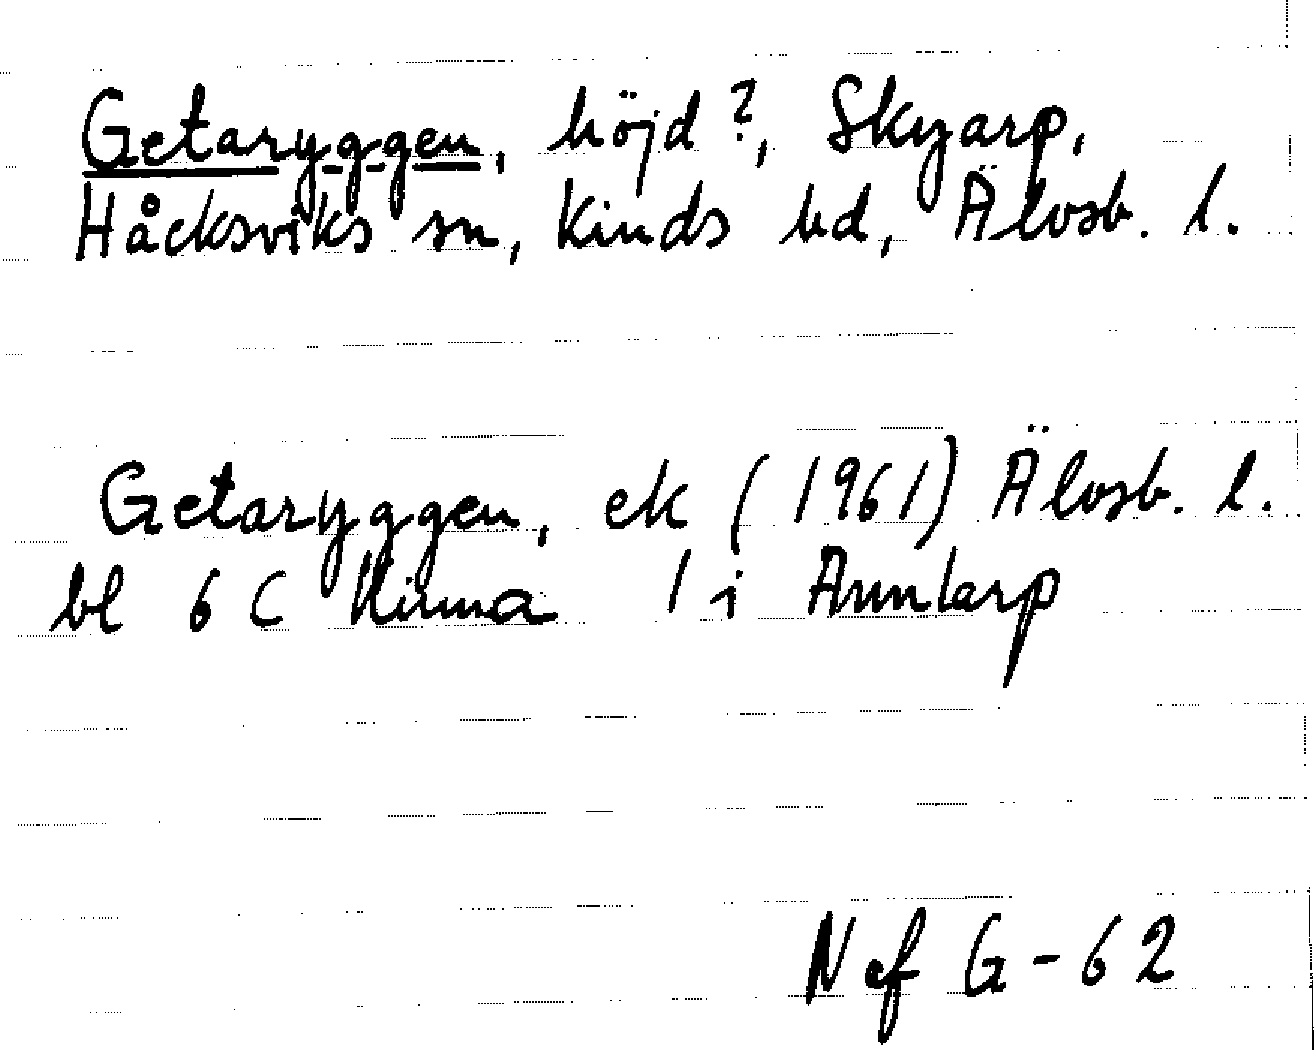 Getaryggen, höjd?, Skyarp,
Håcksviks sn, Kinds hd, Älvsb. l.
Getaryggen, ek (1961) Älvsb. l.
bl 6 C Kinna 1 i Annlarp
Nef G-62